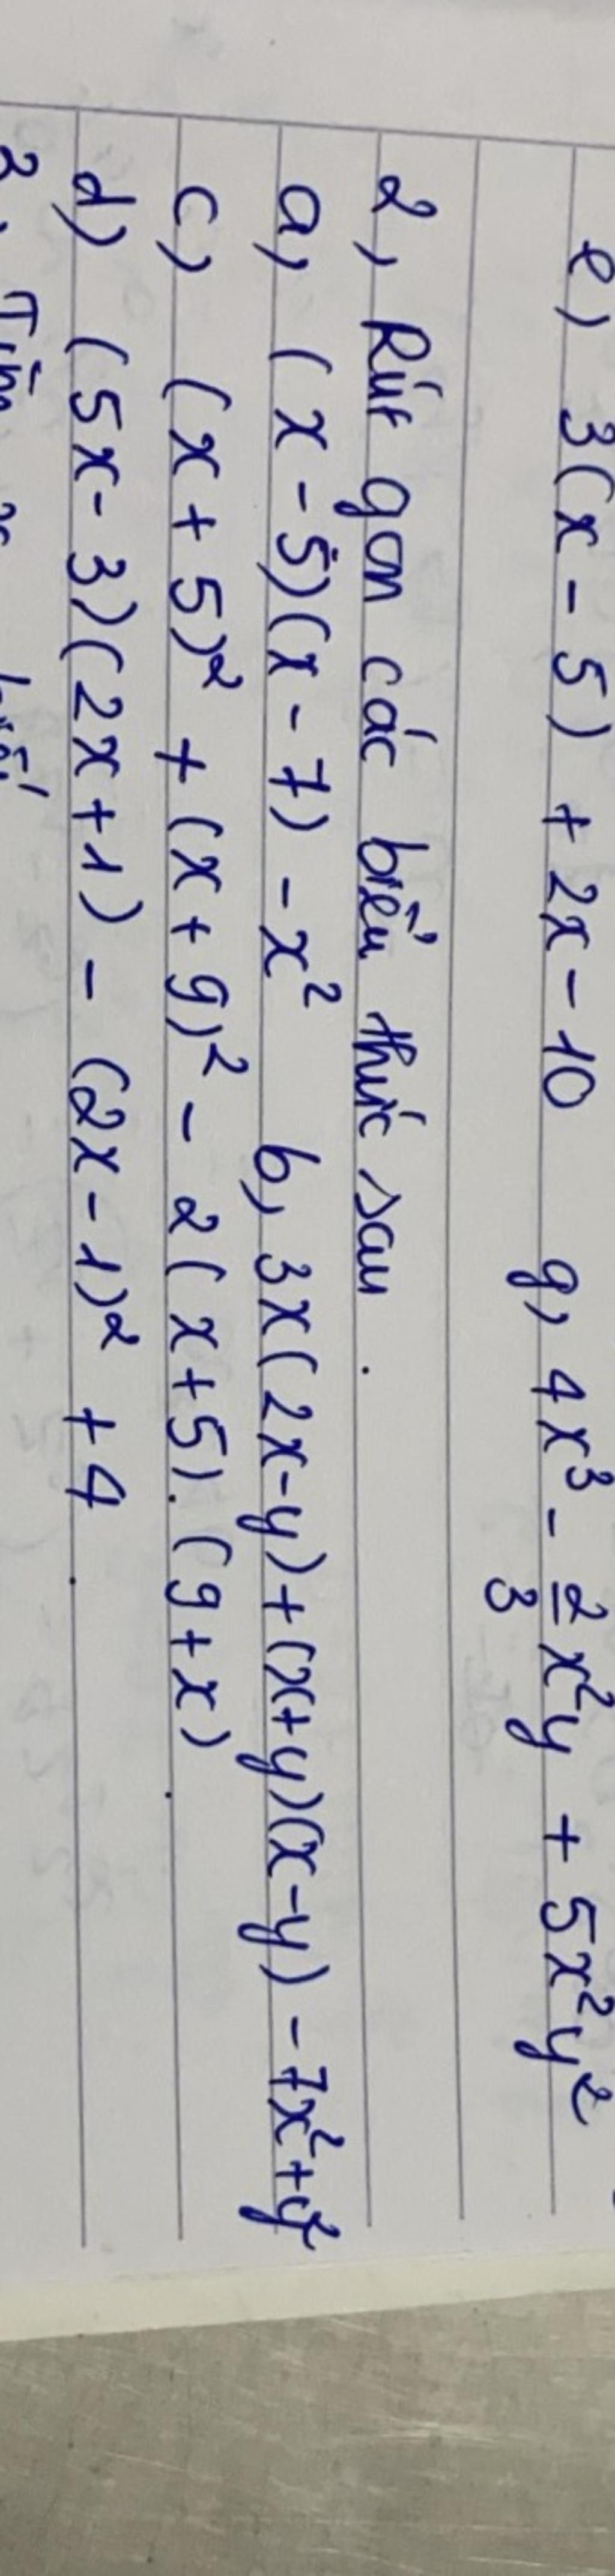 e) 3(x - 5) + 2x - 10 g, 4x³ - 2/3 x²y + 5x²y²
2, Rút gọn các biểu thức sau.
a, (x - 5)(x - 7) - x² b, 3x(2x-y)+(x+y)(x-y) - 7x²+y²
c, (x + 5)² + (x + 9)² - 2(x+5).(9+x).
d) (5x - 3)(2x+1) - (2x-1)² + 4.
3, Tìm x